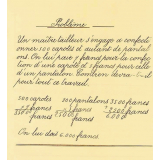 Problème
Un maître tailleur s'engage à confecti
onner 500 capotes et autant de pantal
ons. On lui paie 7 francs pour la confec
tion d'une capote et 5 francs pour celle
d'un pantalon. Combien
pour tout ce travail.
500 capotes 500 pantalons 3500 francs
7 francs 5 francs 2500 francs
3500 francs 2500 francs 6000
On lui doit 6.000 francs